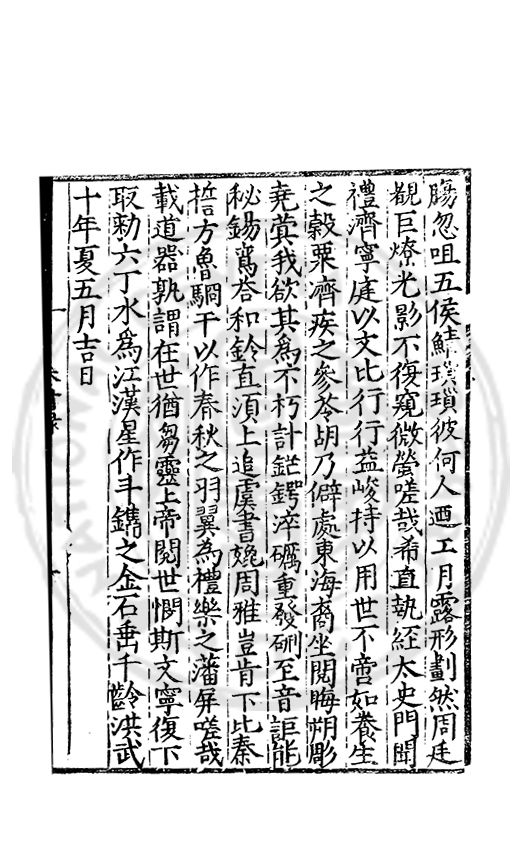 腸忽咀五侯鯖璅瑣彼何人迺工月露形劃然周廷
覩巨燎光影不復窺微螢嗟哉希直執經太史門聞
禮濟寧庭以文比行行益峻持以用世不啻如養生
之榖粟濟疾之參苓胡乃僻處東海裔坐閱晦朔彫
堯蓂我欲其為不朽計鋩鍔淬礪重發硎至音詎能
秘錫鸞荅和鈴直湏上追虞書娩周雅豈肯下比秦
誓方魯駉干以作春秋之羽翼為禮樂之藩屏嗟哉
載道器孰謂在世猶芻靈上帝閱世憫斯文寧復下
取勑六丁水為江漢星作斗鐫之金石垂千齡洪武
十年夏五月吉日